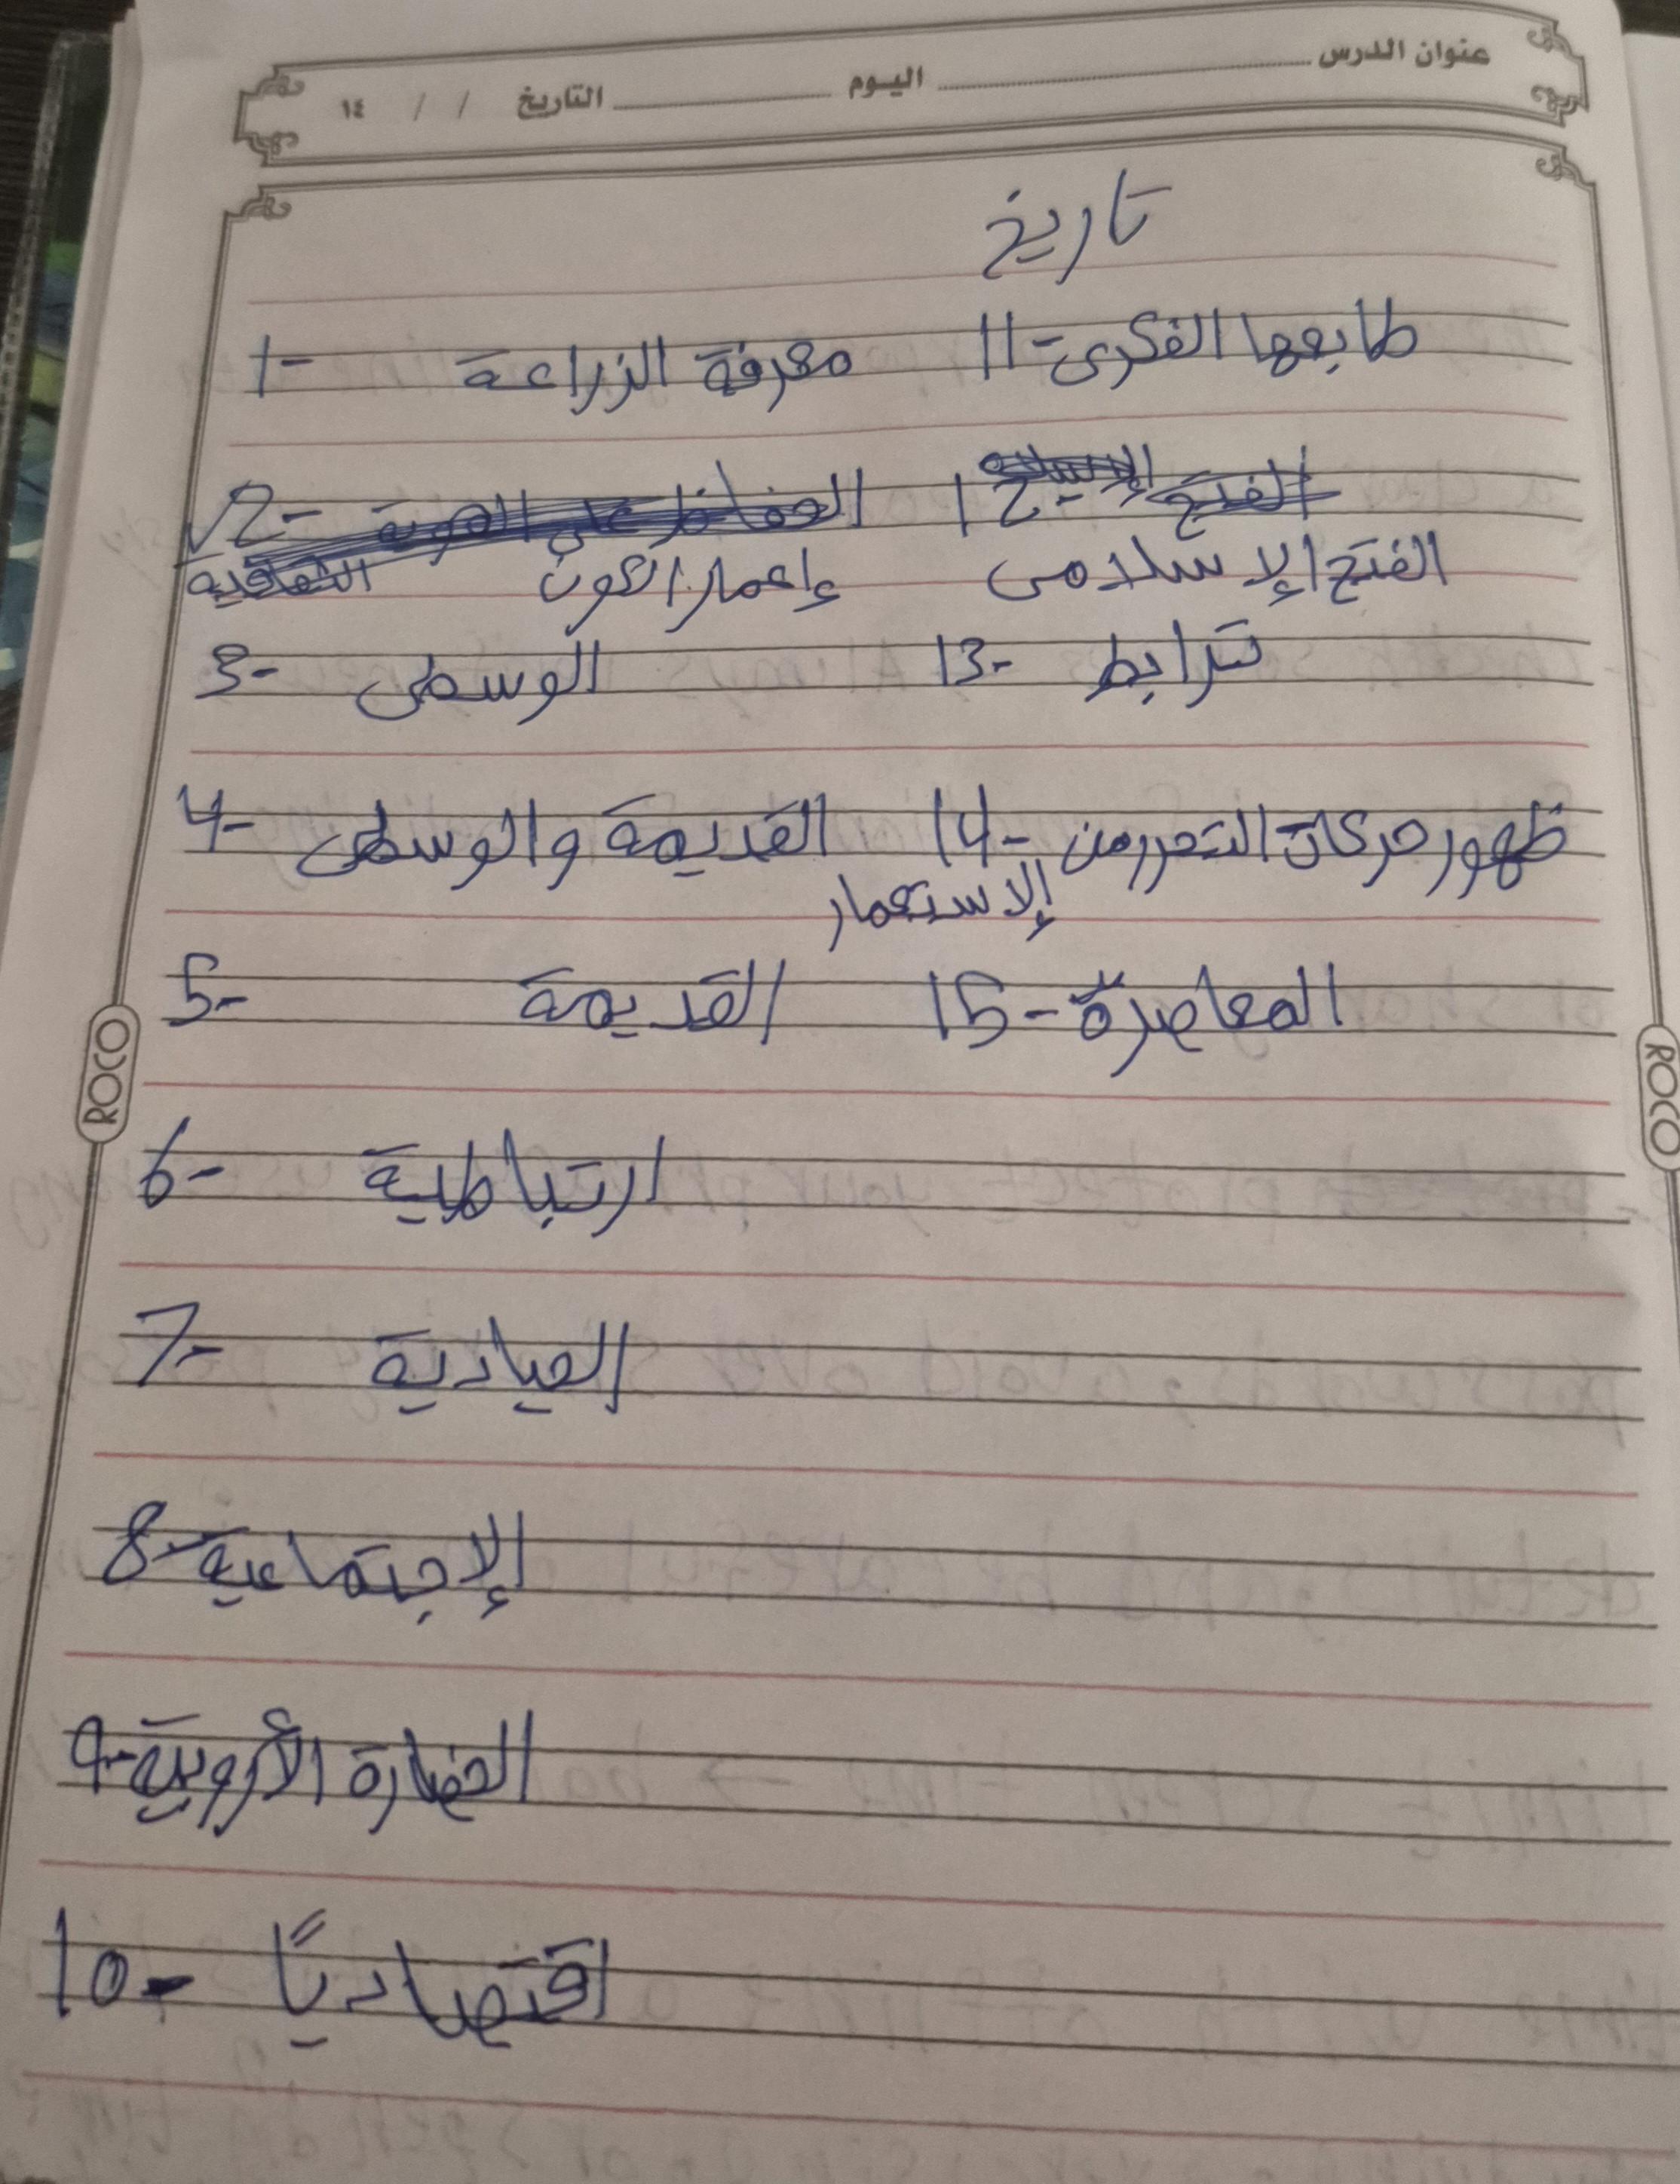 عنوان الدرس اليوم التاريخ / / ١٤
تاريخ
1- معرفة الزراعة
2- الحفاظ على الهوية الثقافية
إعمار الكون
3- الوسطى
4- القديمة والوسطى
5- القديمة
6- ارتباطية
7- الحيادية
8- الإجتماعية
9- الحضارة الأروبية
10- اقتصاديًا
11- طابعها الفكرى
12- الفتح
الفتح الإسلامى
13- ترابط
14- ظهور حركات التحرر من
الإستعمار
15- المعاصرة
ROCO
ROCO